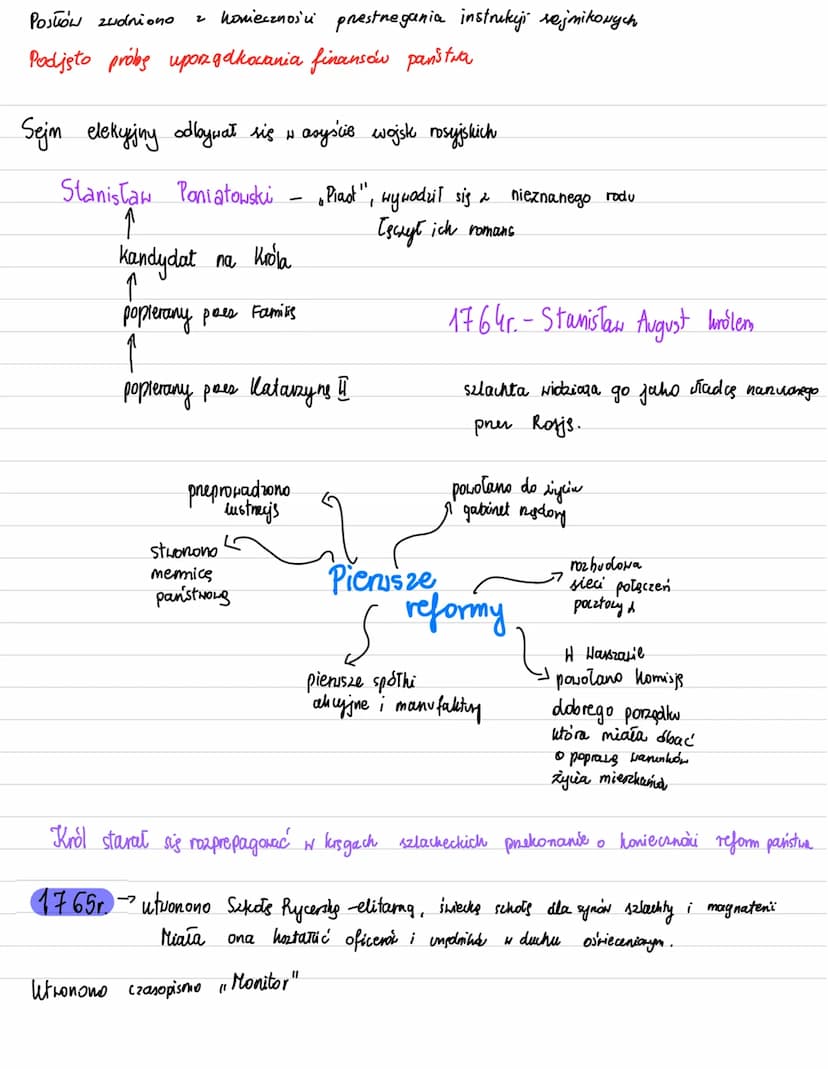 Posłów zwolniono z konieczności przestrzegania instrukcji sejmikowych
Podjęto próbę uporządkowania finansów państwa
Sejm elekcyjny odbywał się w asyście wojsk rosyjskich
Stanisław Poniatowski – „Piast", wywodził się z nieznanego rodu
Łączył ich romans
kandydat na króla
popierany przez Familię
1764r. – Stanisław August królem
popierany przez Katarzynę II
szlachta widziała go jako władcę narzuconego
przez Rosję.
przeprowadzono
lustrację
powołano do życia
gabinet rządowy
stworzono
mennicę
państwową
Pierwsze
reformy
rozbudowa
sieci połączeń
pocztowych
pierwsze spółki
akcyjne i manufaktury
W Warszawie
powołano Komisję
dobrego porządku
która miała dbać
o poprawę warunków
życia mieszkańców
Król starał się rozpropagować w kręgach szlacheckich przekonanie o konieczności reform państwa
1765r. → utworzono Szkołę Rycerską – elitarną, świecką szkołę dla synów szlachty i magnaterii
Miała ona kształcić oficerów i urzędników w duchu oświeceniowym.
Utworzono czasopismo „Monitor"